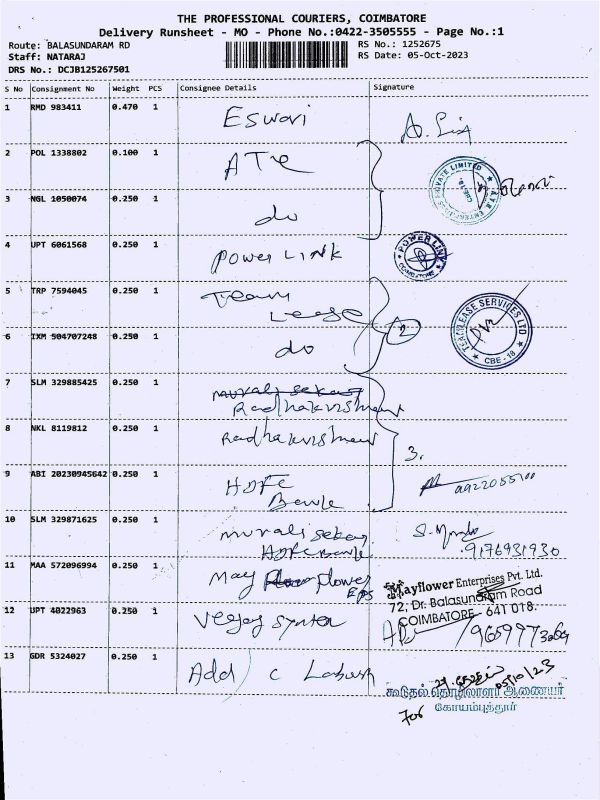 THE PROFESSIONAL COURIERS, COIMBATORE
Delivery Runsheet - MO - Phone No.:0422-3505555 - Page No.:1
Route: BALASUNDARAM RD
RS No.: 1252675
Staff: NATARAJ
RS Date: 05-Oct-2023
DRS No.: DCJB125267501
S No Consignment No Weight PCS Consignee Details Signature
1 RMD 983411 0.470 1 Eswari
2 POL 1338802 0.100 1
PRIVATE LIMITED
3 NGL 1050074 0.250 1 do
4 UPT 6061568 0.250 1 Power LINK
POWER LINK
COIMBATORE
5 TRP 7594045 0.250 1 Team
Lease
2
TEAMLEASE SERVICES LTD
CBE - 18
6 IXM 504707248 0.250 1 do
7 SLM 329885425 0.250 1 murali sekar
Radhakrishnan
8 NKL 8119812 0.250 1 Radhakrishnan
3.
9 ABI 20230945642 0.250 1 HDFC
Bank
10 SLM 329871625 0.250 1 murali sekar
HDFC Bank
9176931930
11 MAA 572096994 0.250 1 May flower
Mayflower Enterprises Pvt. Ltd.
72, Dr. Balasundram Road
COIMBATORE - 641 018.
12 UPT 4022963 0.250 1
13 GDR 5324027 0.250 1 Add / C
05/10/23
கூடுதல் தொழிலாளர் ஆணையர்
கோயம்புத்தூர்